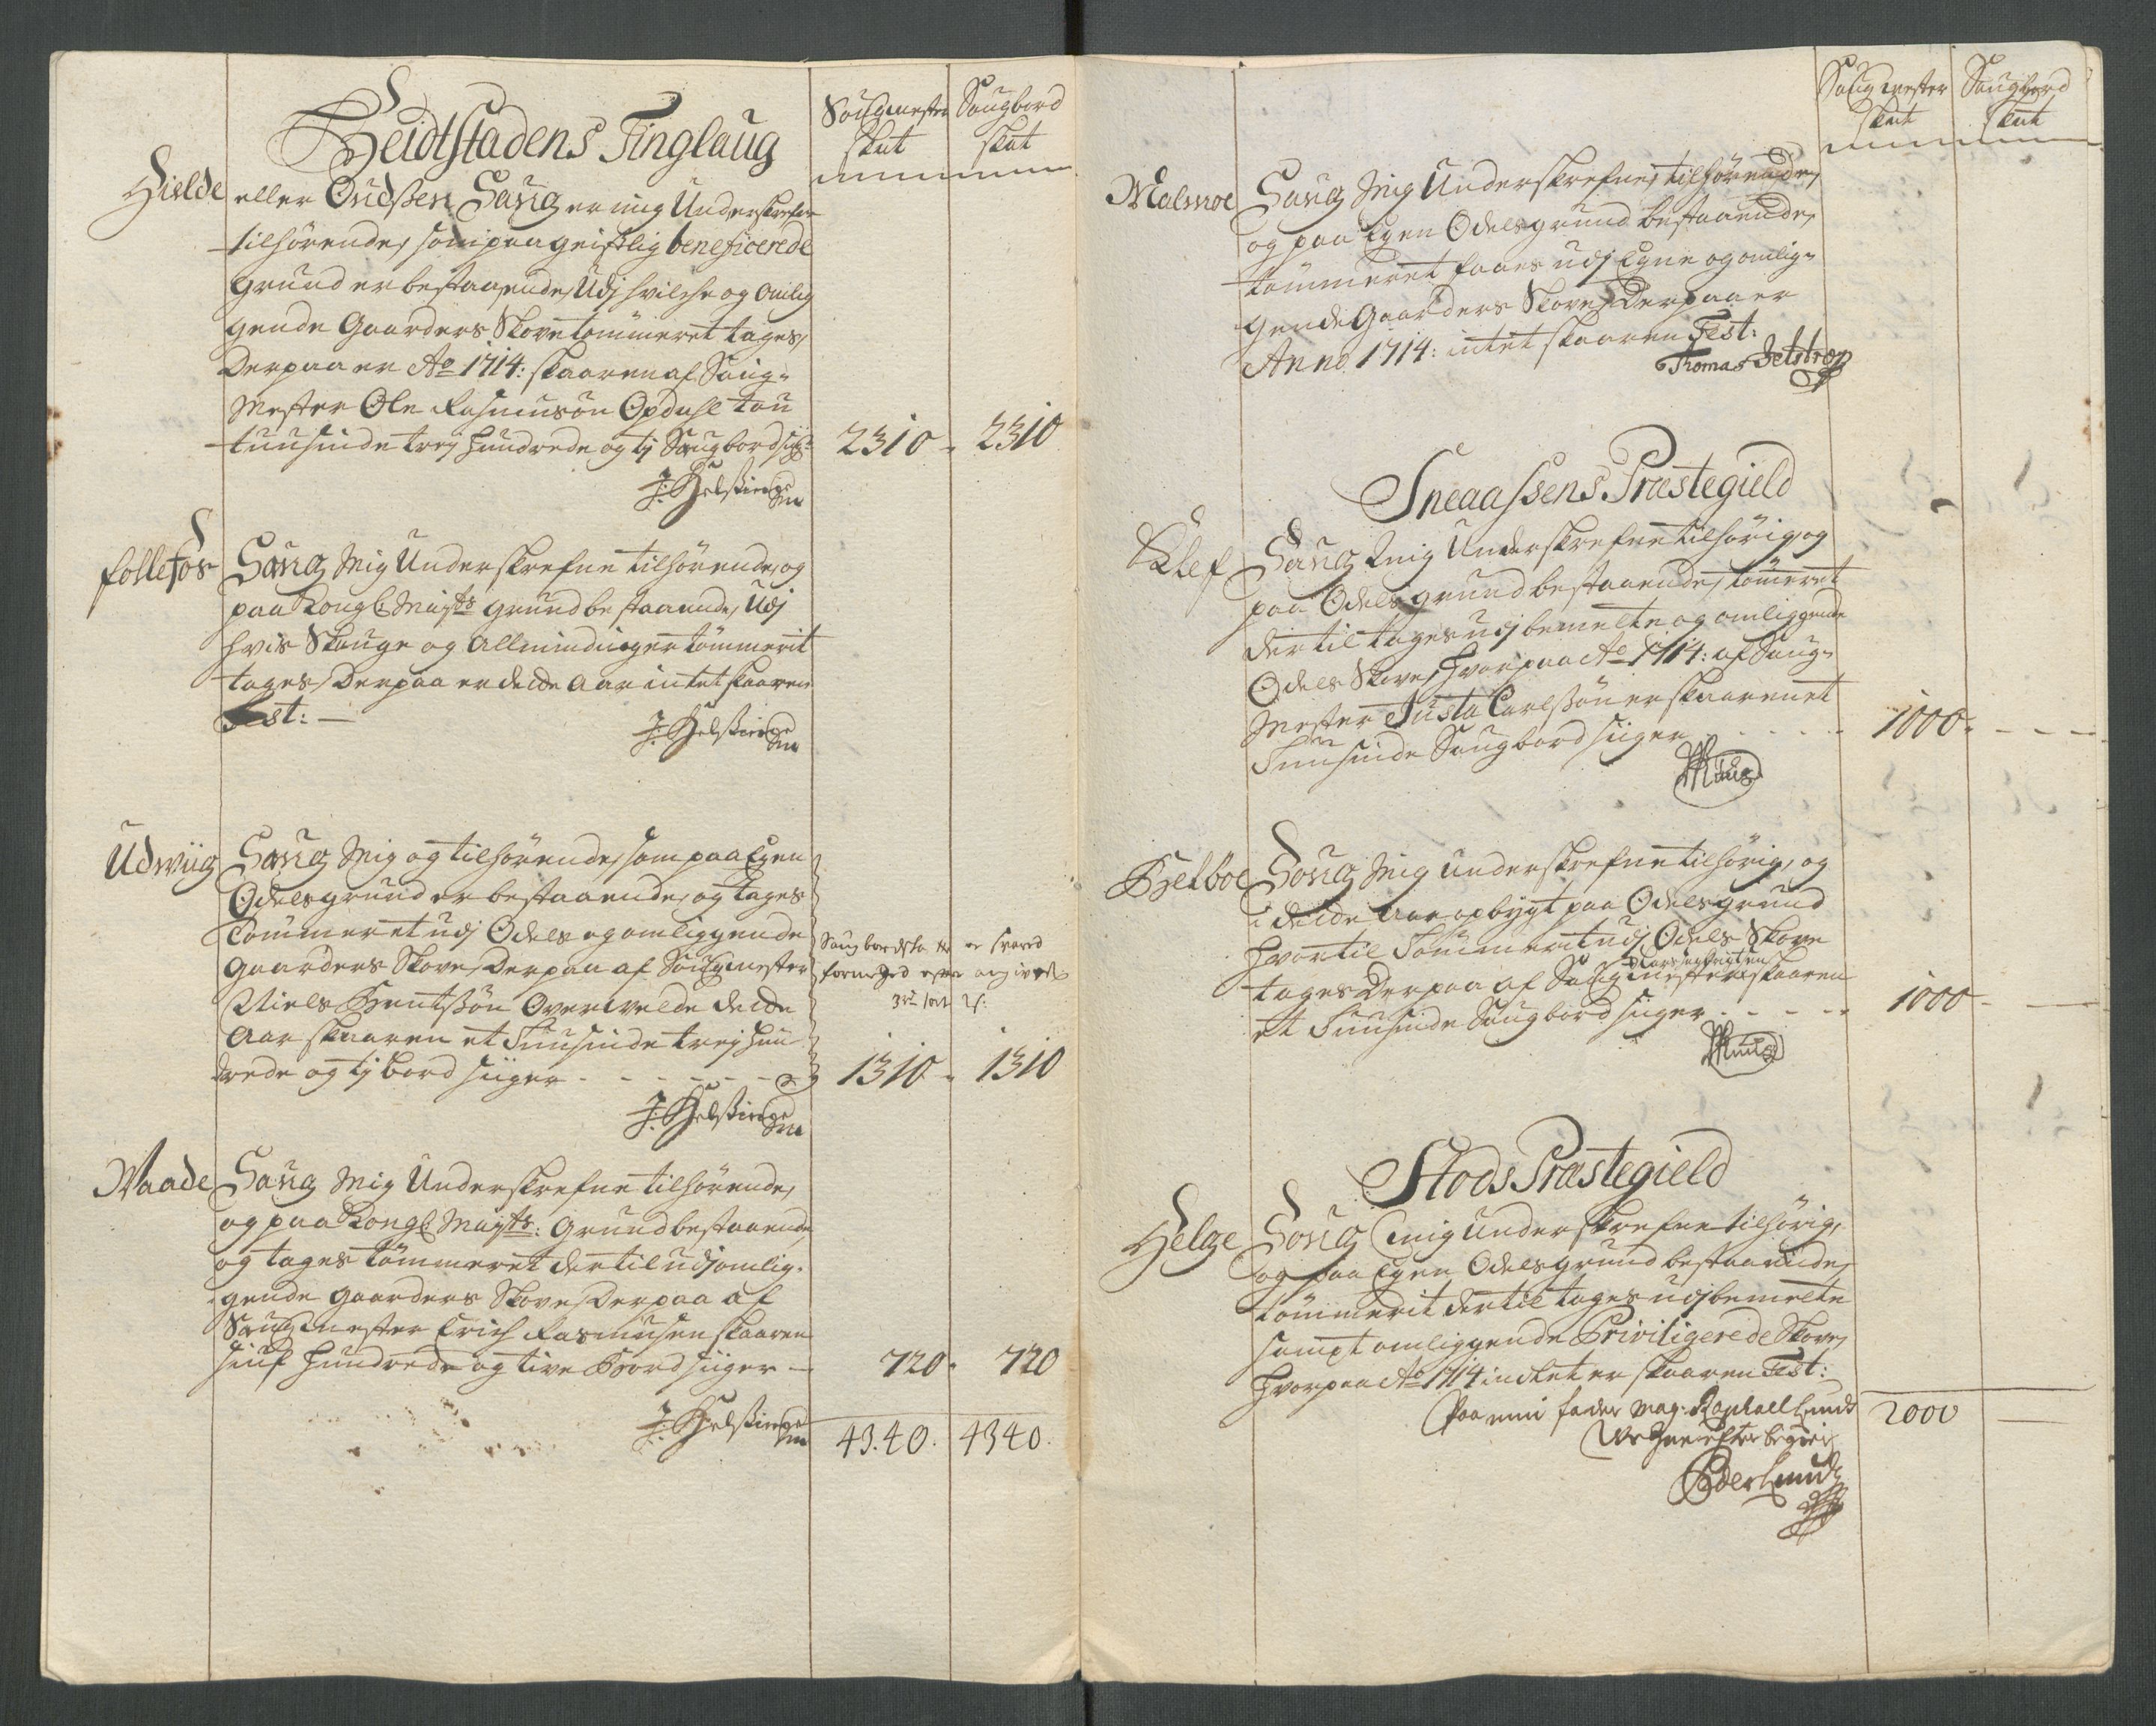 Beidtstadens Tinglaug
Saugmester Skat
Saugbord Skat
Hielde eller Oudssen Saug er mig Underskrefne
tilhörende, som paa geistlig beneficerede
grund er bestaaende, Udj hvilche og omlig
gende Gaarders Skove tömmeret tages,
Derpaa er Ao 1714: skaaren af Saug-
Mester Ole Rasmusön Opdahl tou
tuusinde trej hundrede og tj Saugbord 2310 - 2310
follefos Saug Mig Underskrefne tilhörende, og
paa Kongl: Mayts grund bestaaende, Udj
hvis Skouge og Allmindinger tömmerit
tages, Derpaa er dette Aar intet skaaren
Test: —
Udwiig Saug Mig og tilhörende, som paa Egen
Odels grund er bestaaende, og tages
Tömmeret udj Odels og omliggende
Gaarders Skove, Derpaa af Saugmester
Niels Bentssön Overwelde dette
Aar skaaren et Tuusinde trej hun
drede og tj bord siiger - - - - 1310 - 1310
Waade Saug Mig Underskrefne tilhörende,
og paa Kongl: Mayts: Grund bestaaende
og tages tömmeret dertil udj omlig-
gende Gaarders Skove, Derpaa af
Saugmester Erich Rasmusen skaaren
siuf hundrede og tive Bord siiger — 720 - 720
4340. 4340.
Saugmester Skat
Saugbord Skat
Malmoe Saug Mig Underskrefne, tilhörende,
og paa Egen Odelsgrund bestaaende,
tömmeret faaes udj Egne og omlig-
gende Gaarders Skove, Derpaa er
Anno 1714: intet skaaren Test:
Thomas Jelstrop
Sneaassens Præstegield
Klef Saug Mig Underskrefne tilhörig, og
paa Odels grund bestaaende, tömeret
dertil tages udj bemelte og omliggende
Odels Skove, hvorpaa Ao 1714: af Saug-
Mester Justa Carlssön er skaaren et
Tuusinde Saugbord siiger - - - - 1000 - - - -
Belboe Saug Mig underskrefne tilhörig, og
i dette Aar opbygt paa Odelsgrund
hvortil Tömmerit udj Odels Skove
tages Derpaa af Saugmester skaaren
et Tuusinde Saugbord siiger - - - - 1000 - —
Stods Præstegield
Helge Saug mig underskrefne tilhörig,
og paa Egen Odelsgrund bestaaende,
tömmerit dertil tages udj bemelte
sampt omliggende Priviligerede Skove,
hvorpaa Ao 1714 intet er skaaren Test:
Paa min fader Mag. Raphael Lunds
2000 —
Peder Lund